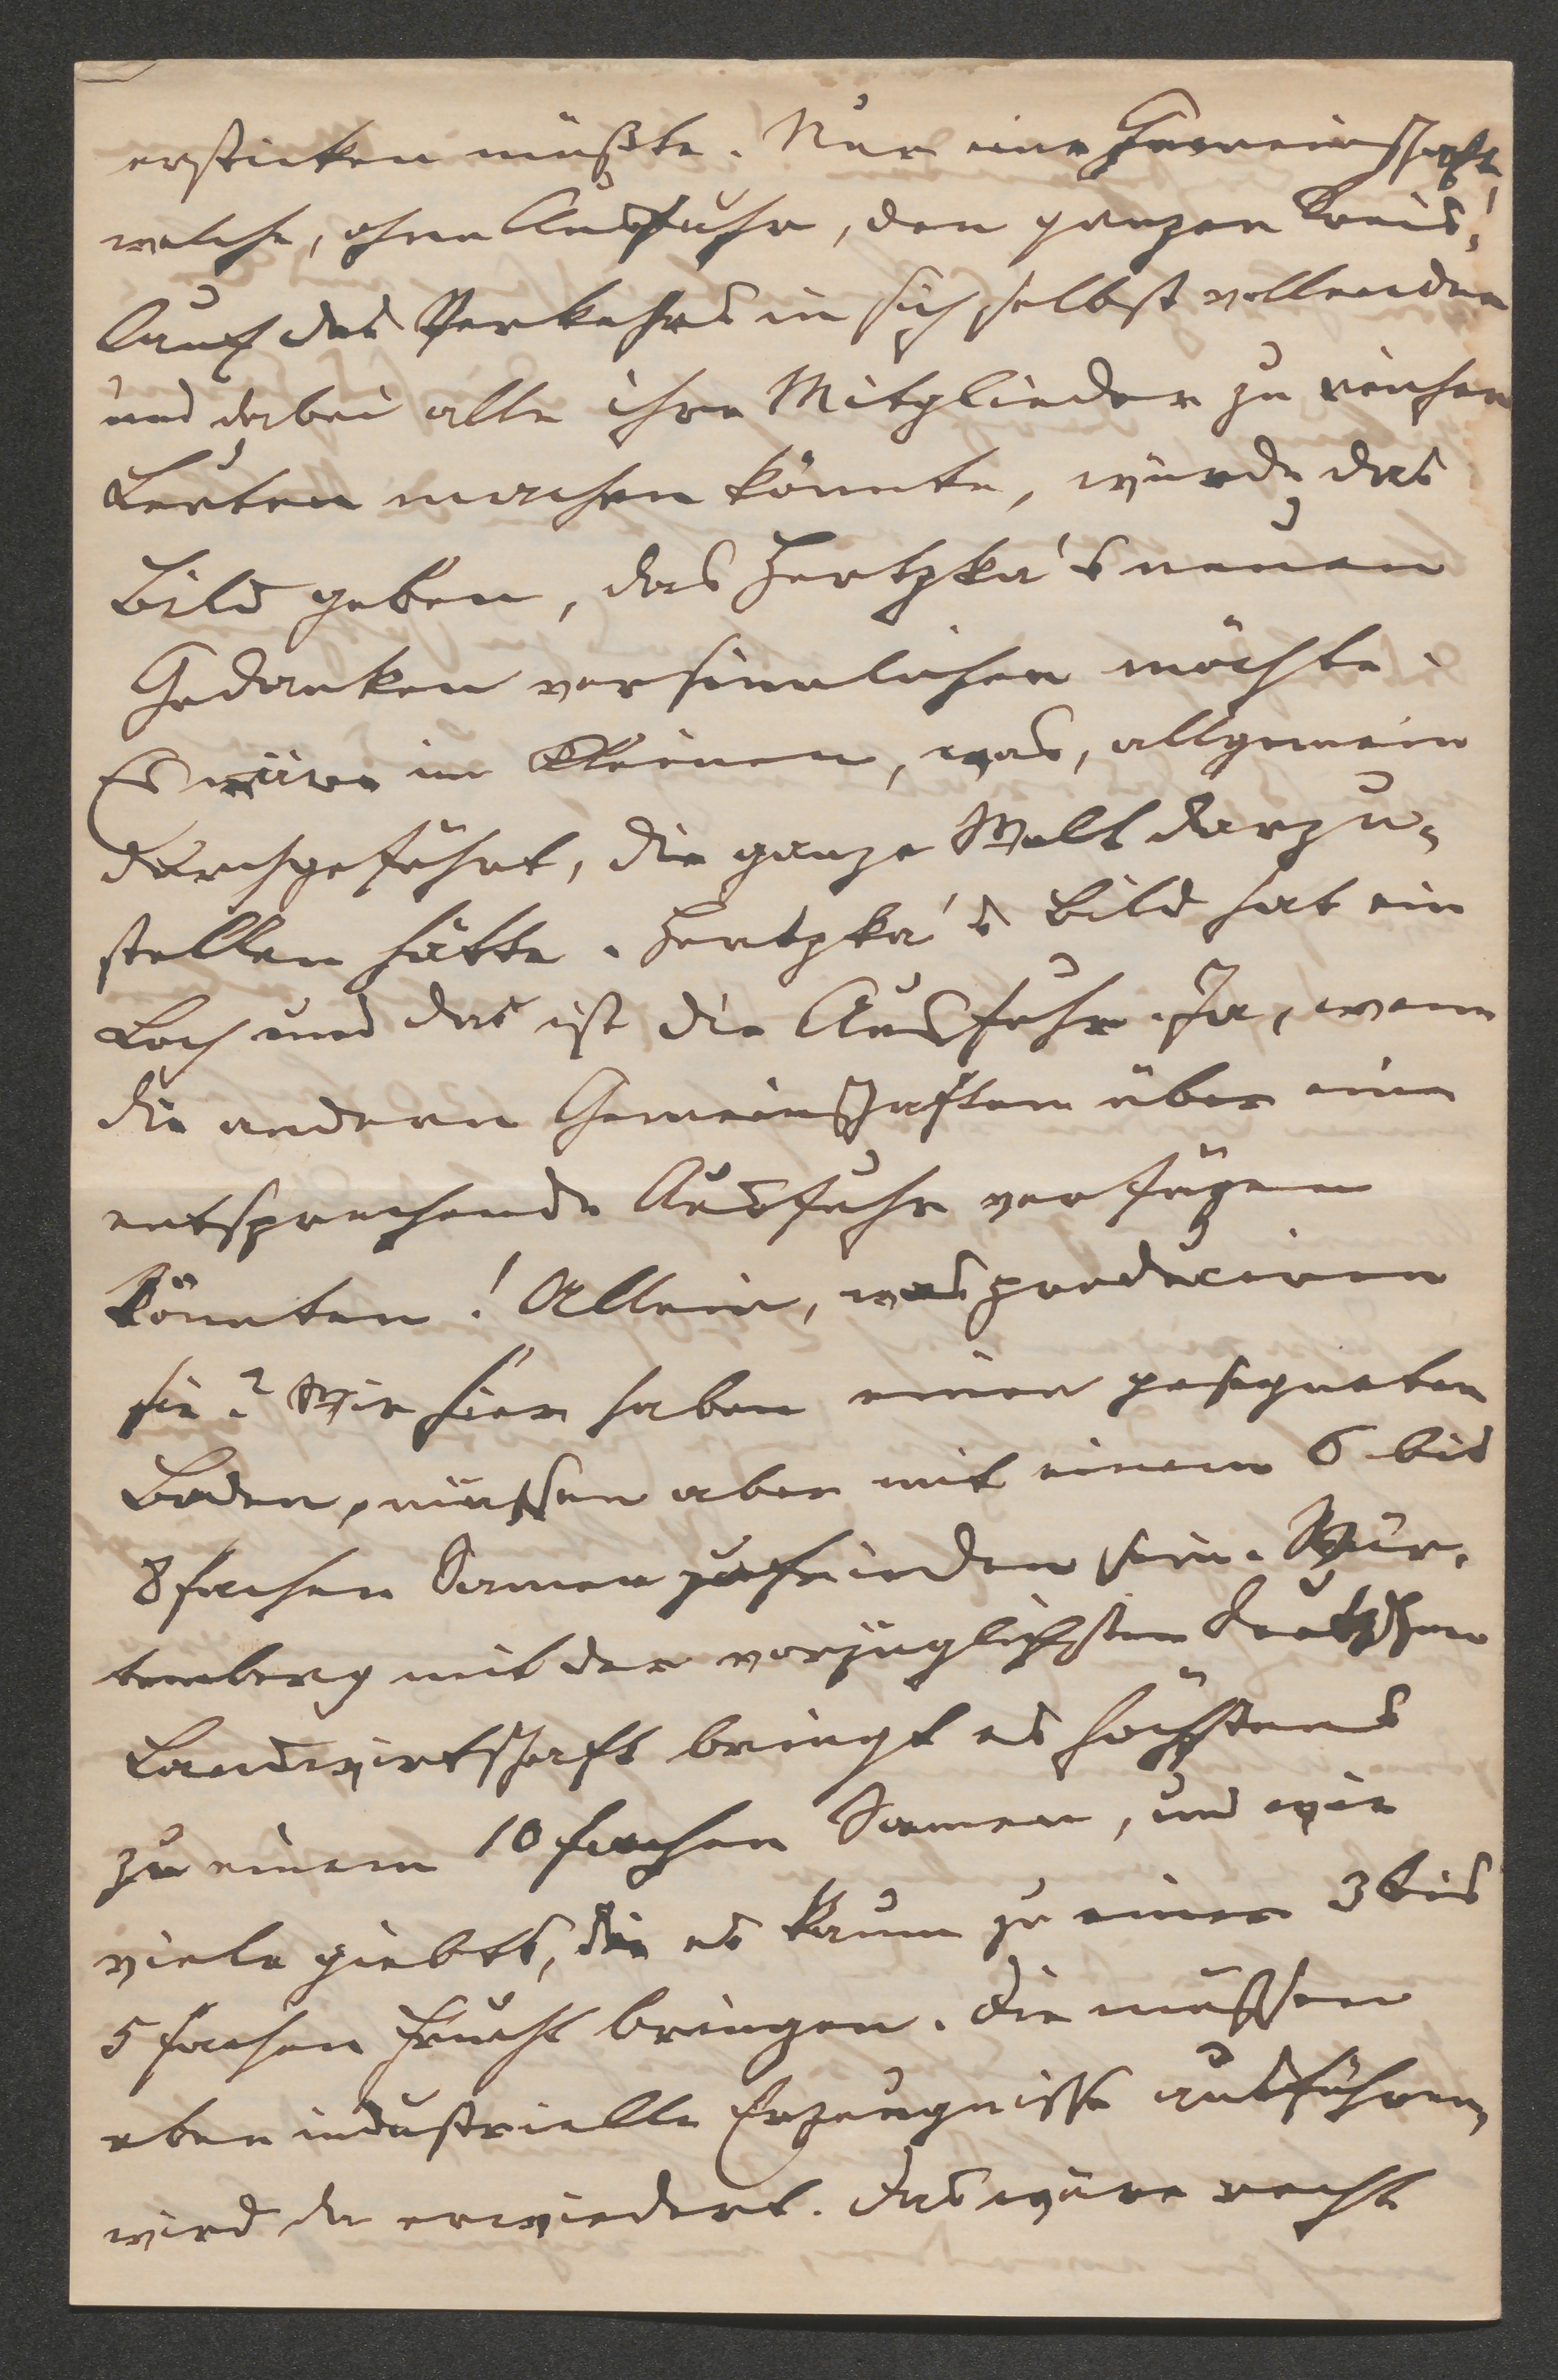 ersticken müßte. Nur eine Gemeinschaft,
welche, ohne Ausfuhr, den ganzen Kreis-
lauf des Verkehrs in sich selbst vollenden
und dabei alle ihre Mitglieder zu reichen
Leuten machen könnte, würde das
Bild geben, das Hertzka's neuen
Gedanken versinnlichen möchte.
Es wäre im Kleinen, was, allgemein
durchgeführt, die ganze Welt darzu-
stellen hätte. Hertzka's Bild hat ein
Loch und das ist die Ausfuhr. Ja, wenn
die andern Gemeinschaften über eine
entsprechende Ausfuhr verfügen
könnten! Allein, was produciren
sie? Wir hier haben einen gesegneten
Boden, müssen aber mit einem 6 bis
8fachen Samen zufrieden sein. Wür-
temberg mit der vorzüglichsten deutschen
Landwirtschaft bringt es höchstens
zu einem 10fachen Samen, und wie
viele giebts, die es kaum zu einer 3 bis
5fachen Frucht bringen. Die müssen
eben industrielle Erzeugnisse ausführen,
wird da erwiedert. Das wäre recht